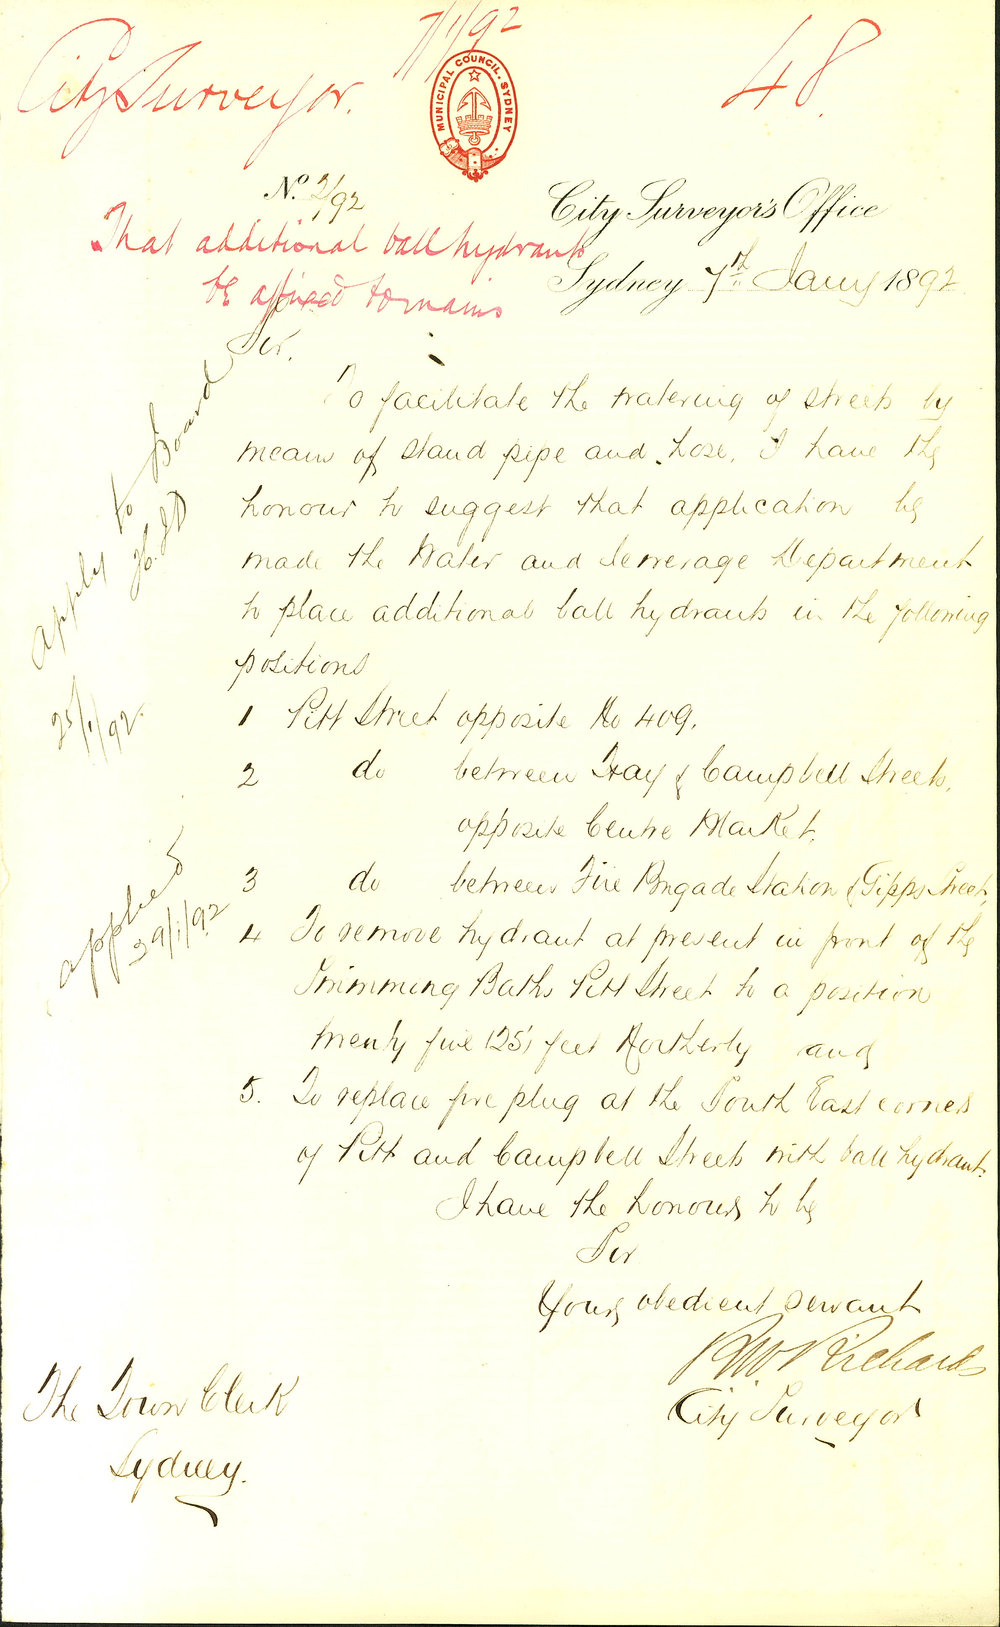 7/1/92
City Surveyor.
48
MUNICIPAL COUNCIL. SYDNEY
No. 2/92
City Surveyor's Office
That additional ball hydrants
be affixed to mains
Sydney 7th Jany 1892
Sir,
To facilitate the watering of streets by
means of stand pipe and hose, I have the
honour to suggest that application be
made the Water and Sewerage Department
to place additional ball hydrants in the following
positions
1 Pitt Street opposite No 409.
2 do between Hay & Campbell Streets,
opposite Centre Market.
3 do between Fire Brigade Station & Gipps Street,
4 To remove hydrant at present in front of the
Swimming Baths Pitt Street to a position
twenty five (25) feet Northerly and
5. To replace fire plug at the South East corner
of Pitt and Campbell Streets with ball hydrant.
I have the honour to be
Sir
Your obedient servant
Richards
City Surveyor
The Town Clerk
Sydney.
Apply to Board
25/1/92.
applied
29/1/92